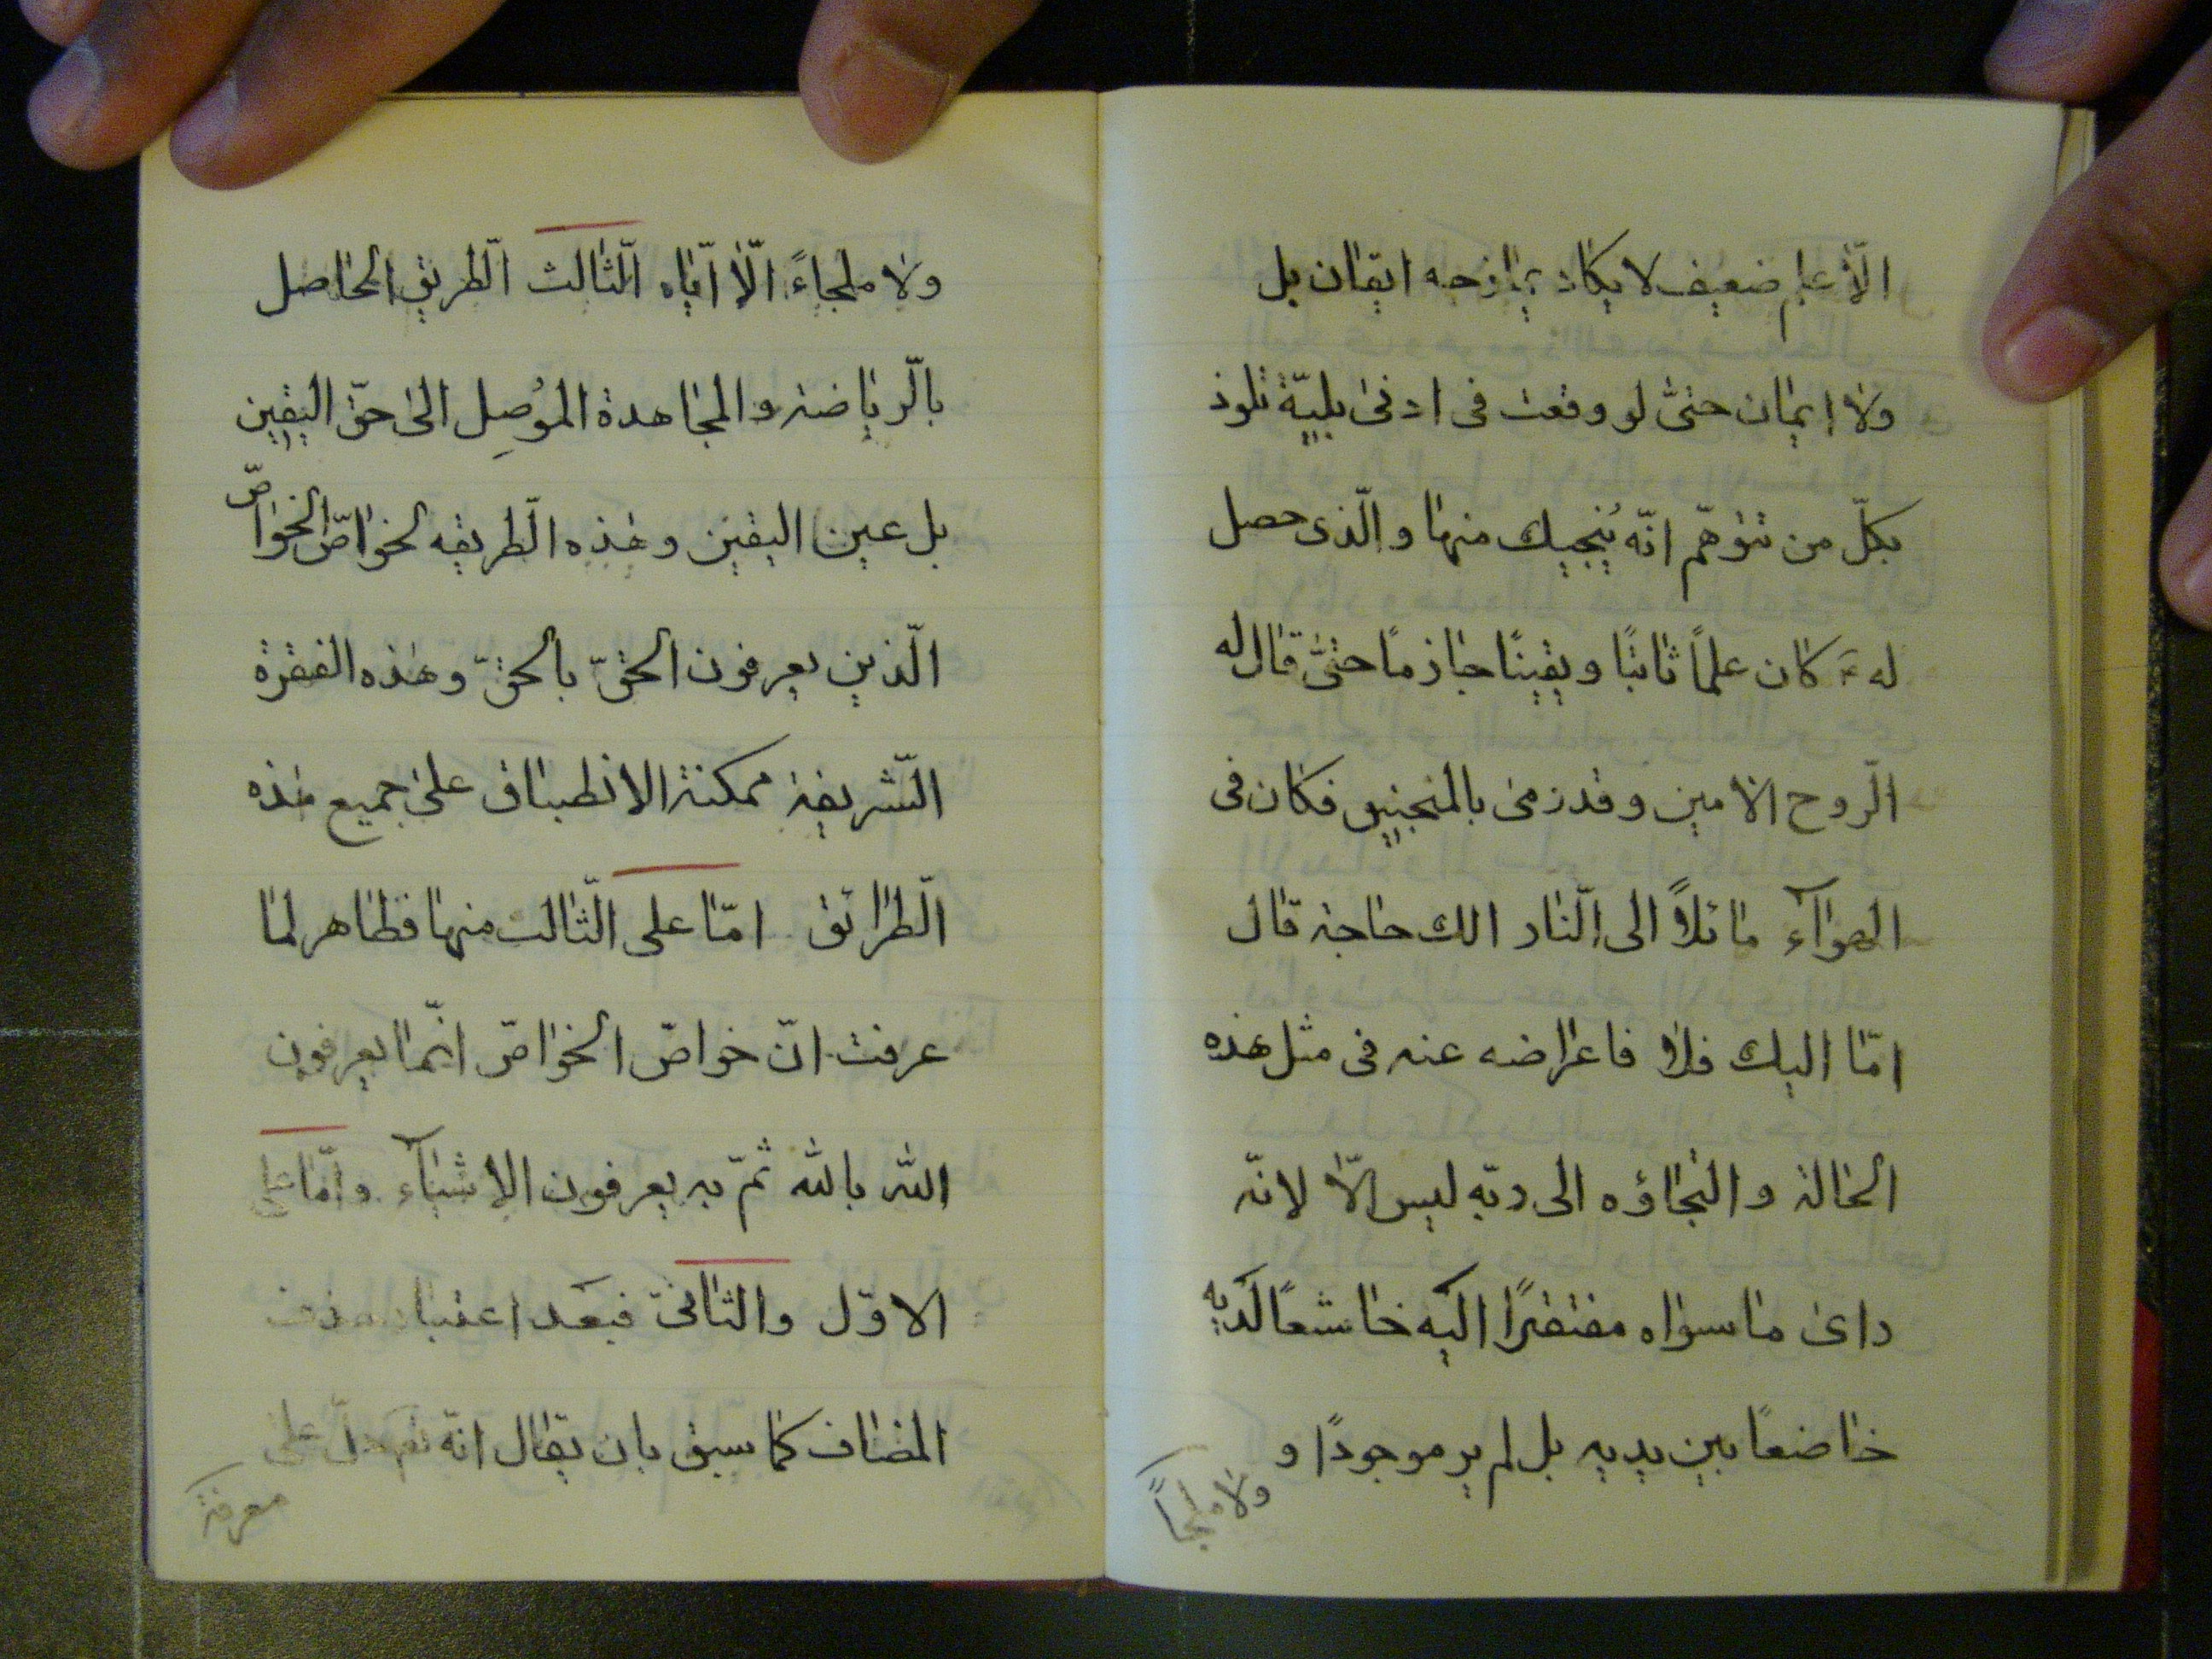 الّا علم ضعيف لا يكاد يمازجه ايقان بل
ولا ايمان حتّى لو وقعت فى ادنى بليّة تلوذ
بكلّ من تتوهّم انّه يُنجيك منها والّذى حصل
له كان علماً ثابتًا ويقينًا جازمًا حتّى قال له
الّروح الامين وقد رمى بالمنجنيق فكان فى
الهوآء مائلاً الى الّنار الك حاجة قال
امّا اليك فلا فاعراضه عنه فى مثل هذه
الحالة والتجاؤه الى ربّه ليس الّا لانّه
راى ما سواه مفتقرًا اليه خاشعًا لديه
خاضعًا بين يديه بل لم ير موجودًا و
ولا ملجأً
ولا ملجاءً الّا ايّاه الّثالث الّطريق الحاصل
بالّرياضة والمجاهدة المُوصِل الى حقّ اليقين
بل عين اليقين وهذه الّطريقه لخواصّ الخواصّ
الّذين يعرفون الحقّ بالحقّ وهذه الفقرة
الّشريفة ممكنة الانطباق على جميع هذه
الّطرائق امّا على الّثالث منها فظاهر لما
عرفت انّ خواصّ الخواصّ انّما يعرفون
الله بالله ثمّ به يعرفون الاشيآء وامّا على
الاوّل والثانى فبعد اعتبار حذف
المضاف كما سبق بان يقال انّه تعـ دلّ على
معرفة